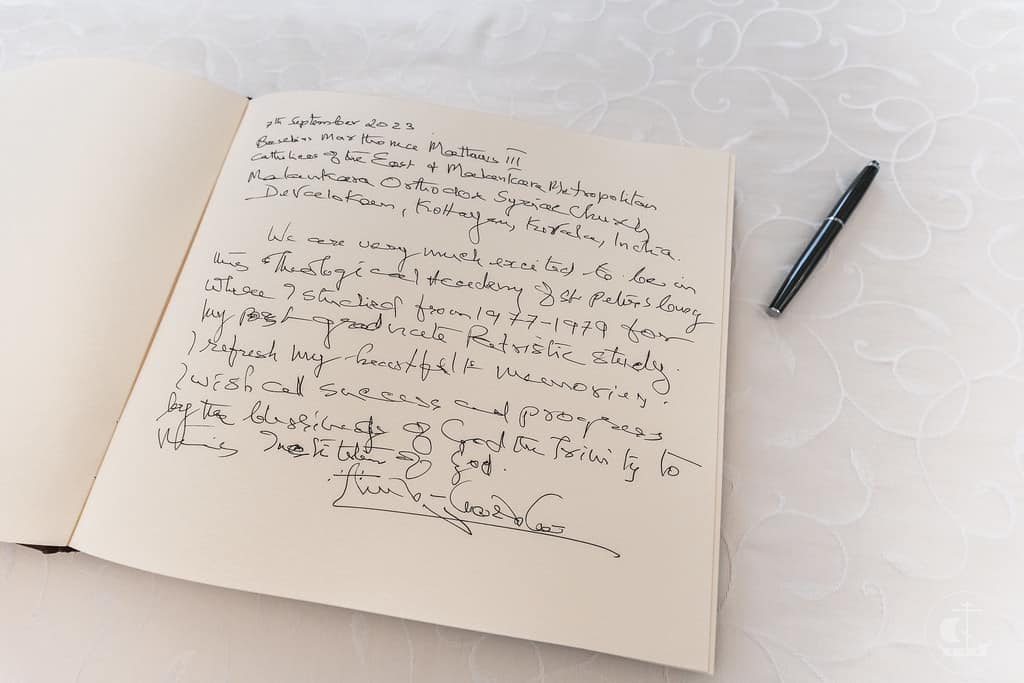 7th September 2023
Baselios Marthoma Mathews III
Catholicos of the East & Malankara Metropolitan
Malankara Orthodox Syrian Church
Devalokam, Kottayam, Kerala, India.
We are very much excited to be in
this Theological Academy of St Petersburg
where I studied from 1977-1979 for
my post graduate Patristic study.
I refresh my heartfelt memories.
I wish all success and progress
by the blessings of God the Trinity to
this Institution of God.